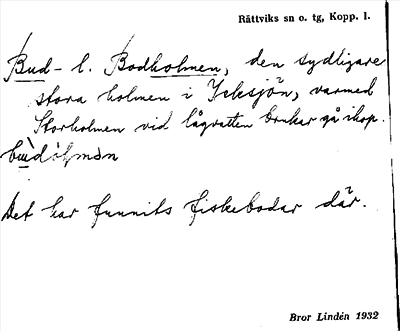 Rättviks sn o. tg, Kopp. l.
Bud- l. Bodholmen, den sydligare
stora holmen i Ycksjön, varmed
Storholmen vid lågvatten brukar gå ihop.
Det har funnits fiskebodar där.
Bror Lindén 1932